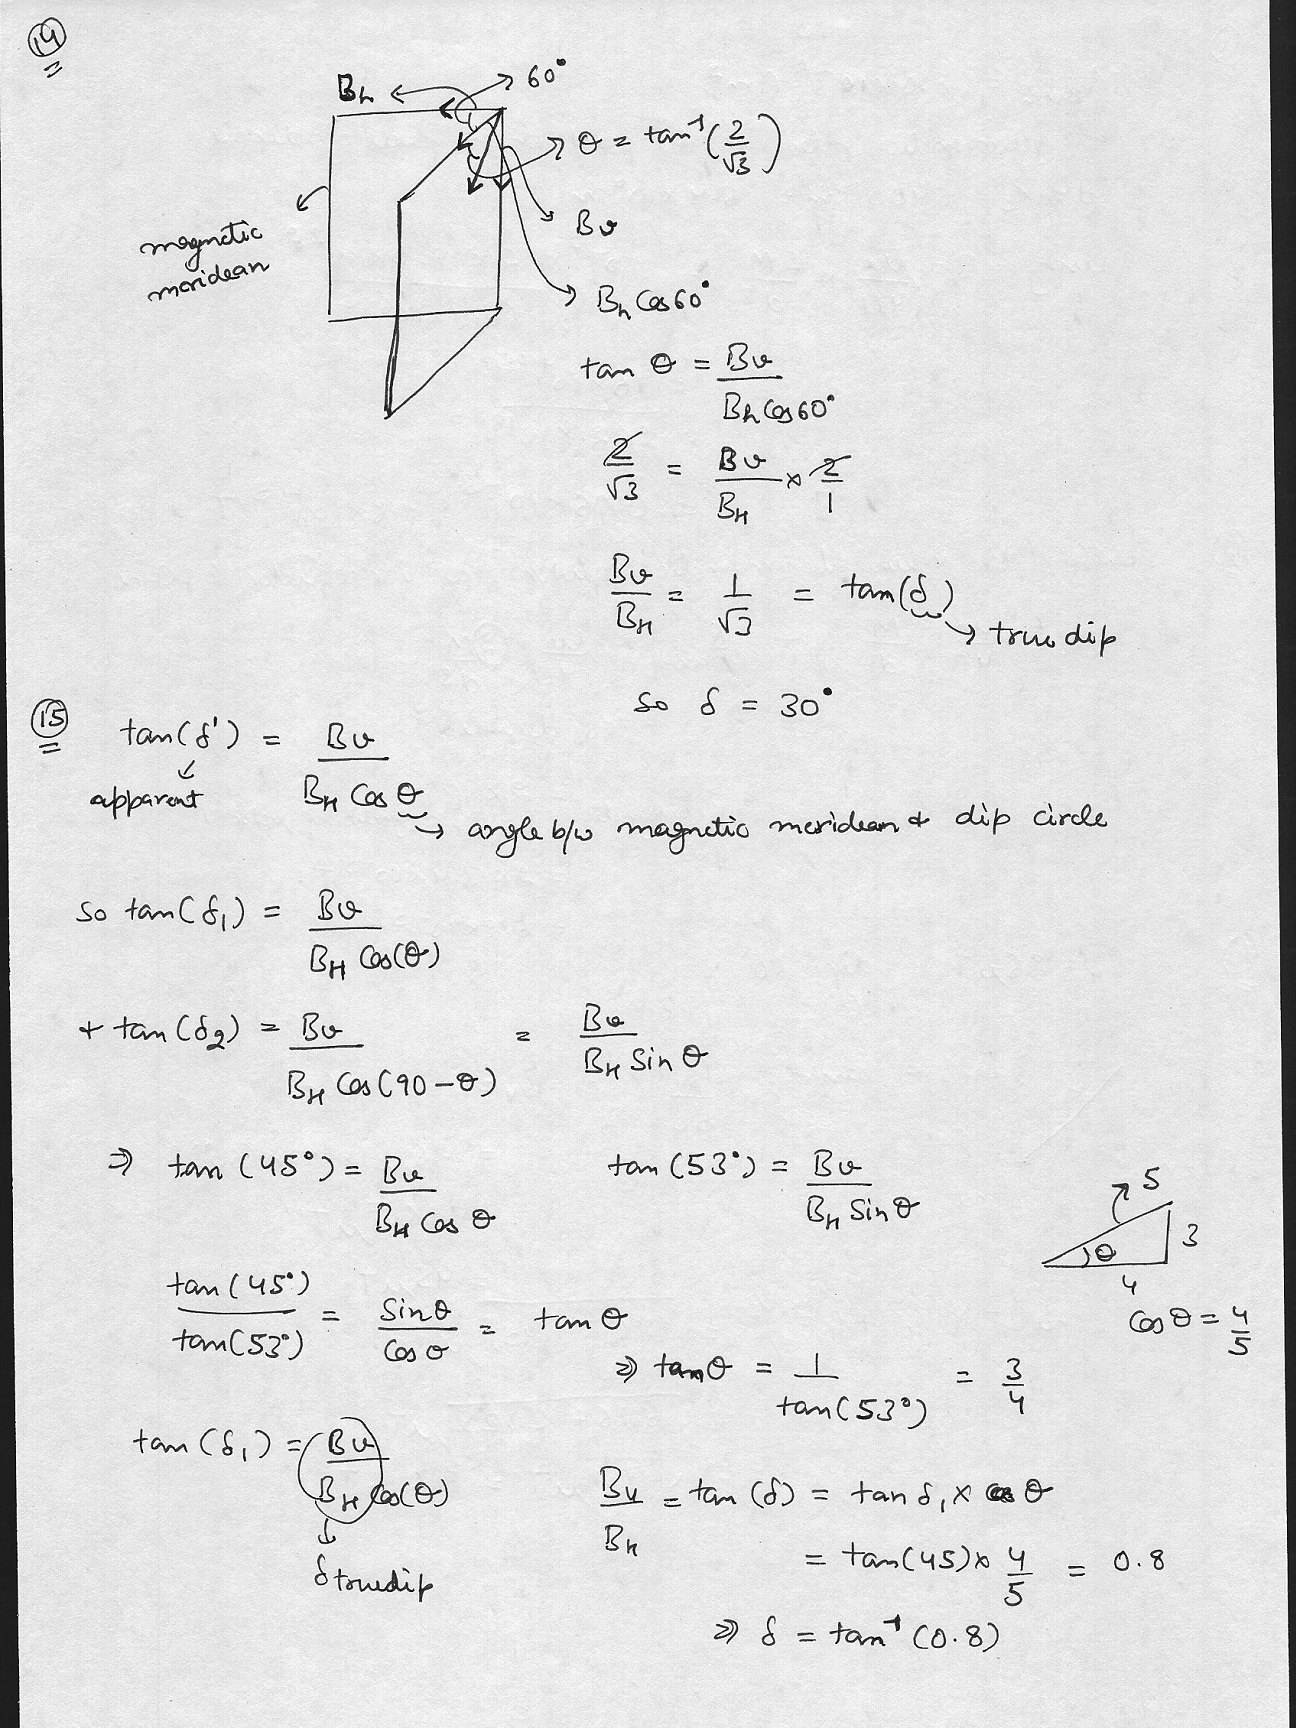 14
Bh
60°
θ = tan⁻¹(2/√3)
Bv
magnetic
meridean
Bh Cos60°
tan θ = Bv / Bh Cos60°
2/√3 = Bv/BH × 2/1
Bv/BH = 1/√3 = tan(δ)
true dip
so δ = 30°
15
tan(δ') = Bv / BH Cos θ
apparent
angle b/w magnetic meridean & dip circle
so tan(δ1) = Bv / BH Cos(θ)
& tan(δ2) = Bv / BH Cos(90-θ) = Bv / BH Sin θ
⇒ tan(45°) = Bv / BH Cos θ tan(53°) = Bv / BH Sin θ
5
θ
3
4
Cos θ = 4/5
tan(45°) / tan(53°) = Sin θ / Cos θ = tan θ
⇒ tan θ = 1 / tan(53°) = 3/4
tan(δ1) = Bv / BH Cos(θ)
δ true dip
Bv / BH = tan(δ) = tan δ1 × cos θ
= tan(45) × 4/5 = 0.8
⇒ δ = tan⁻¹(0.8)